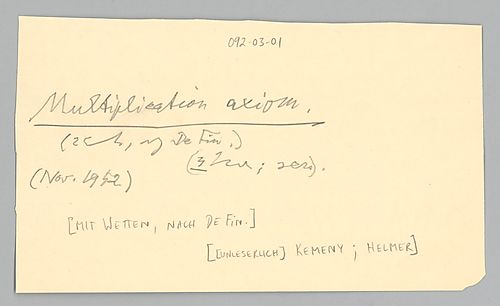 092-03-01
Multiplication axiom.
De Fin.)
(Nov. 1952)
[MIT WETTEN, NACH DE FIN.]
[[UNLESERLICH] KEMENY ; HELMER]